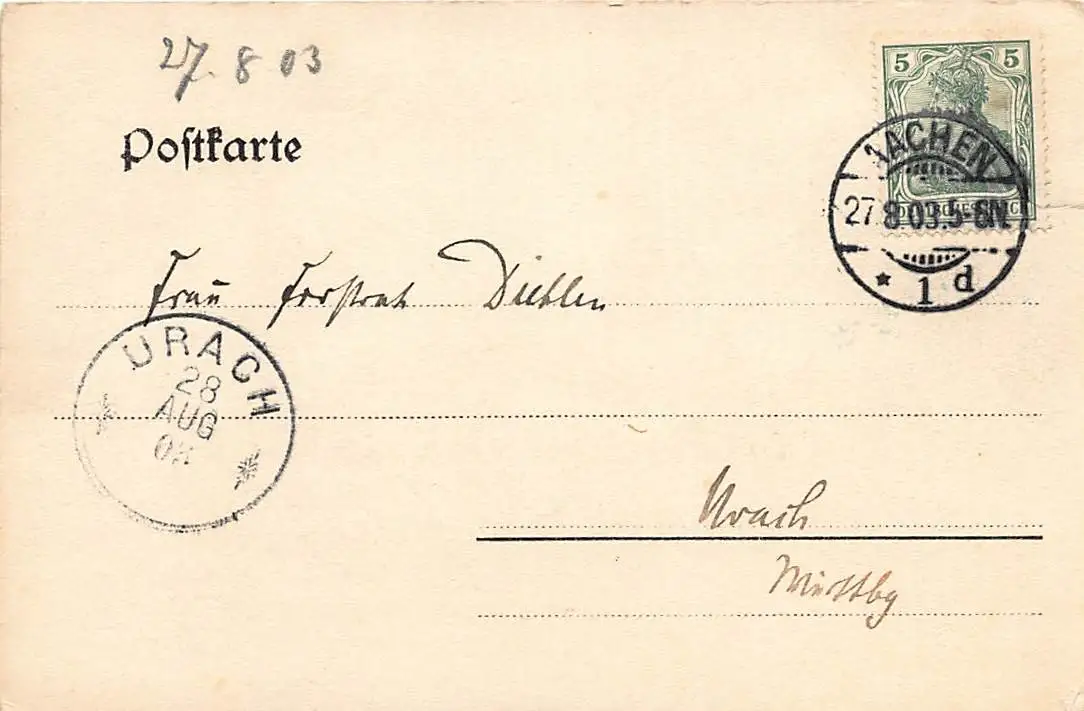 27. 8 03
Postkarte
5 5
AACHEN
27.8.03.5-6N.
* 1 d
Frau Forstrat Dieblen
URACH
28
AUG
03
Urach
Württbg